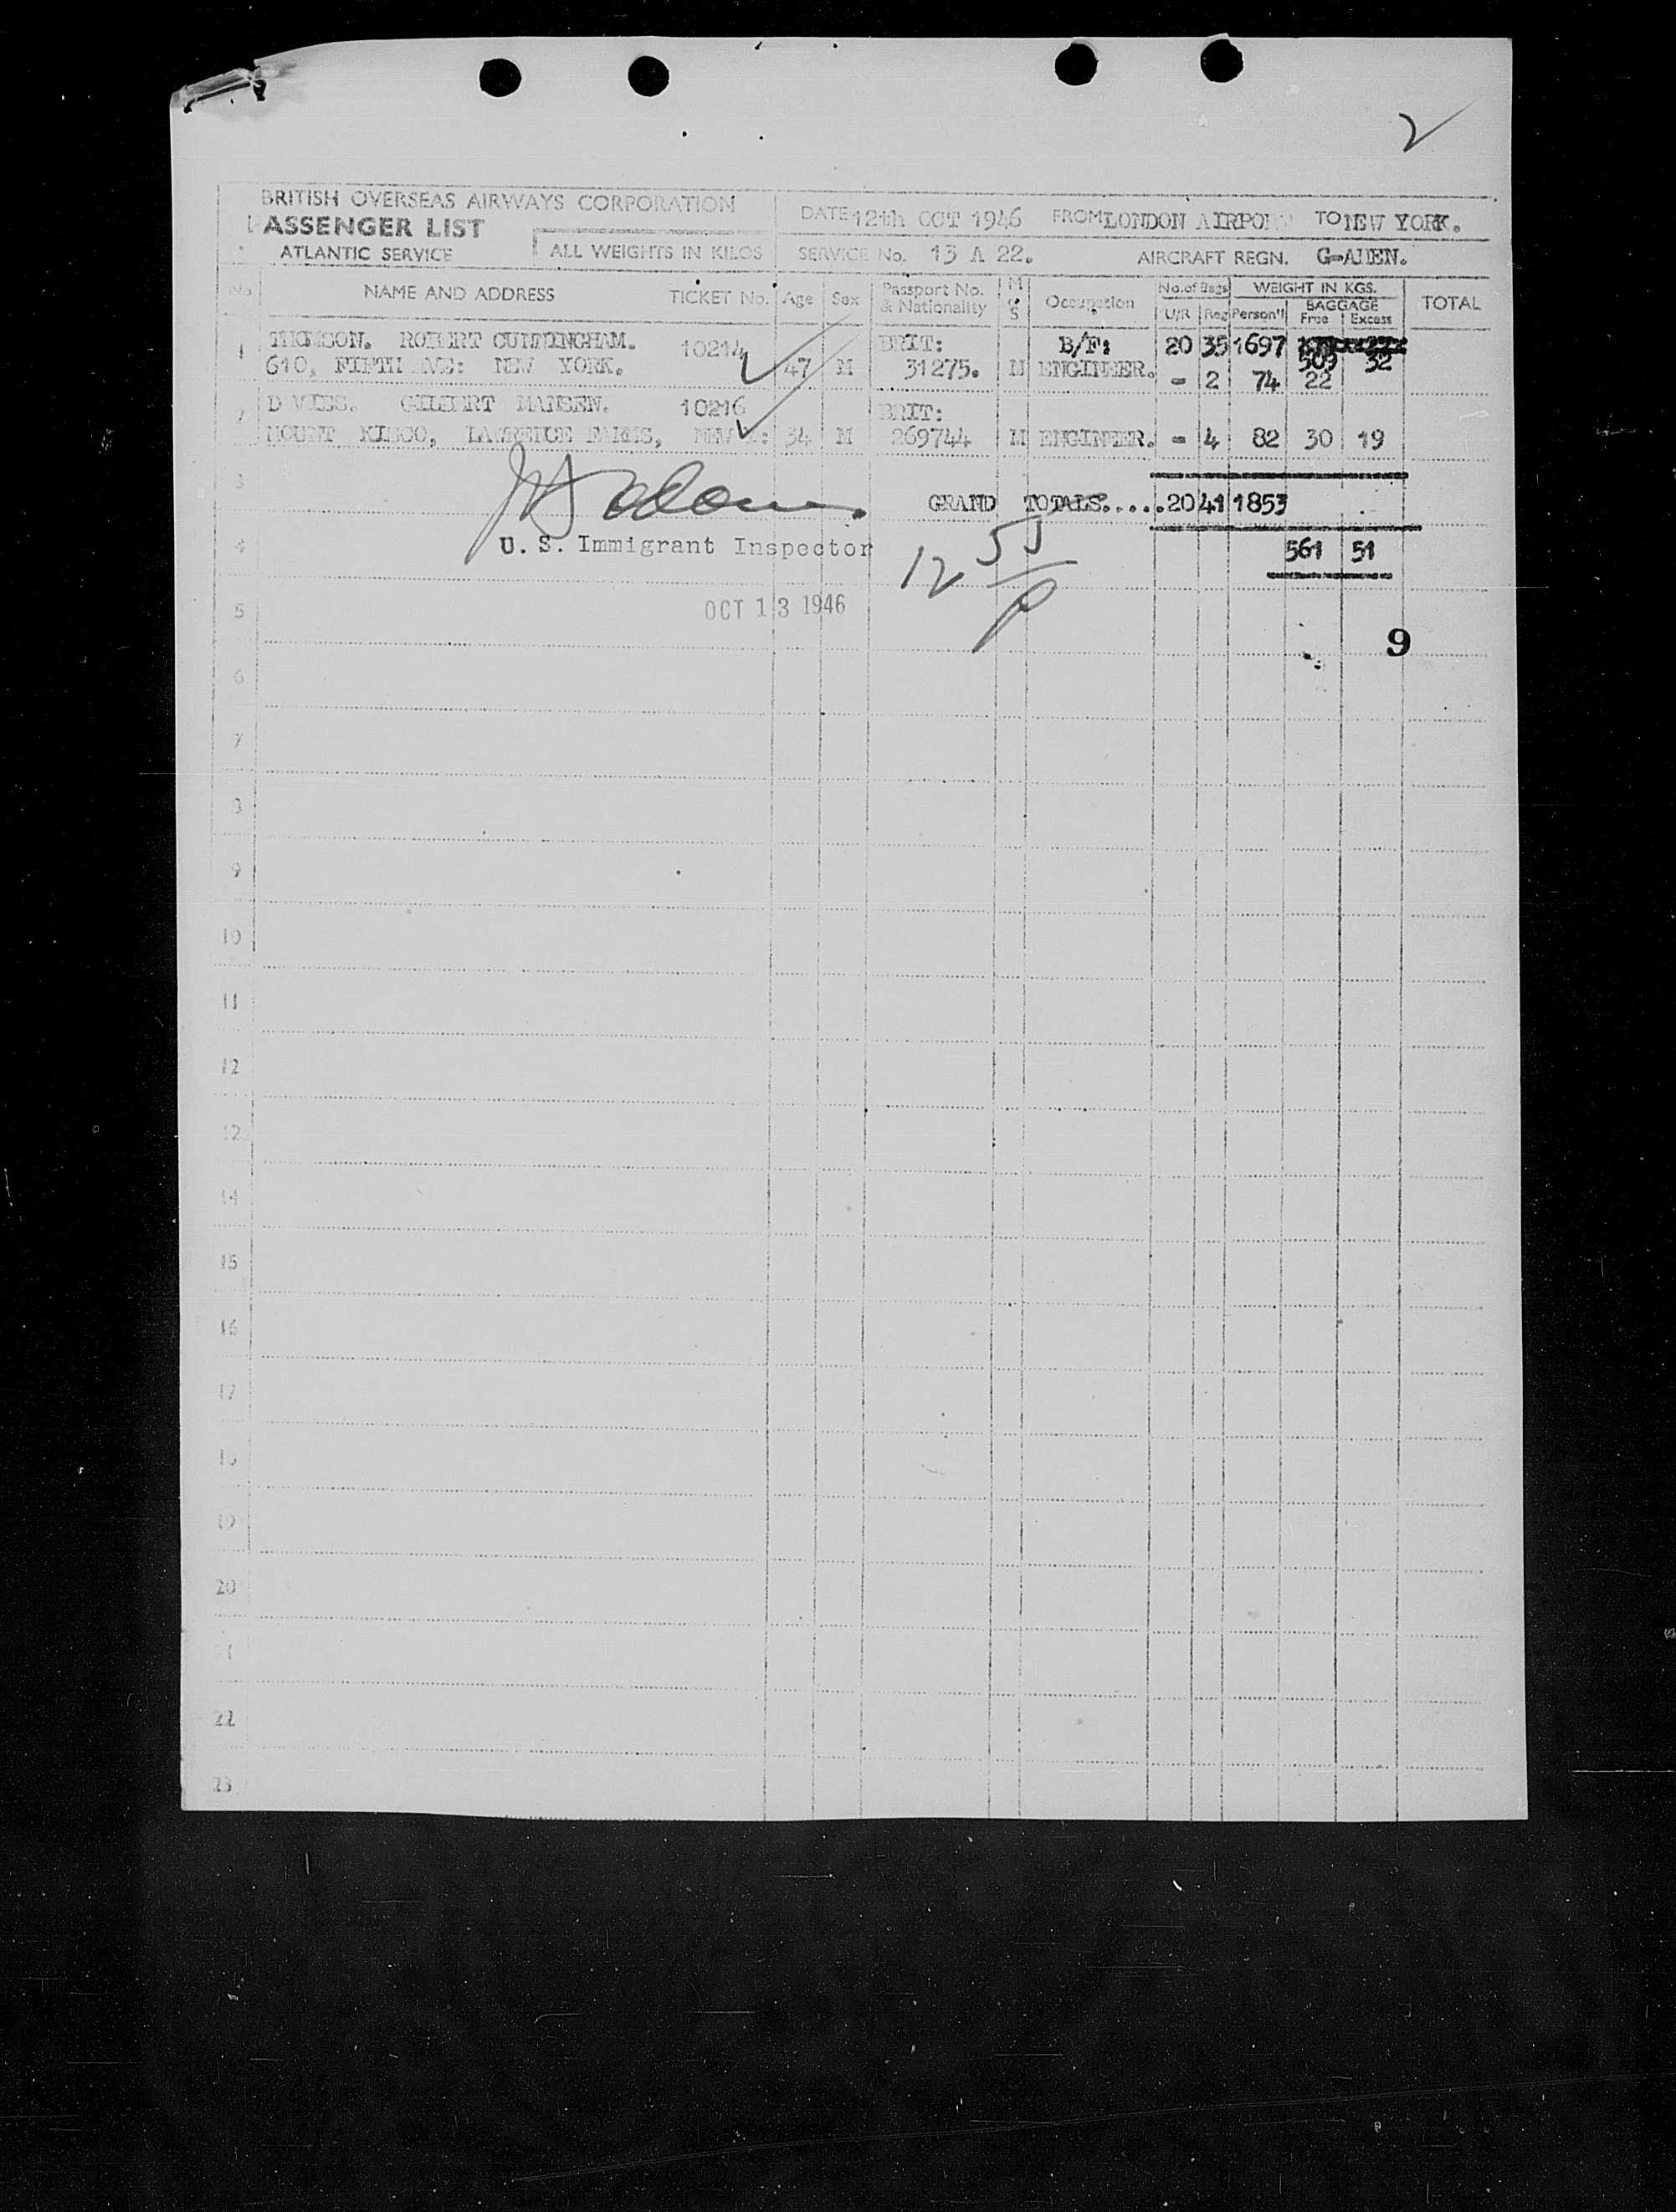 2
BRITISH OVERSEAS AIRWAYS CORPORATION
PASSENGER LIST
ATLANTIC SERVICE
ALL WEIGHTS IN KILOS
DATE 12th OCT 1946 FROM LONDON AIRPORT TO NEW YORK.
SERVICE No. 13 A 22. AIRCRAFT REGN.
No. NAME AND ADDRESS TICKET No. Age Sex Passport No. & Nationality M S Occupation No. of Bags U/R Reg WEIGHT IN KGS. Person'l BAGGAGE Free Excess TOTAL
1 THOMSON. ROBERT CUNNINGHAM. 10214 BRIT: B/F: 20 35 1697
509 32
610, FIFTH AVE: NEW YORK. 47 M 31275. M ENGINEER. - 2 74 22
2 D VIES. GILBERT HANSEN. 10216 BRIT:
MOUNT KISCO, LAWRENCE FARMS, NEW 34 M 269744 M ENGINEER. - 4 82 30 19
3
GRAND TOTALS.....20 41 1853
4 U. S. Immigrant Inspector
561 51
12 55/P
5 OCT 13 1946
9
6
7
8
9
10
11
12
13
14
15
16
17
18
19
20
21
22
23